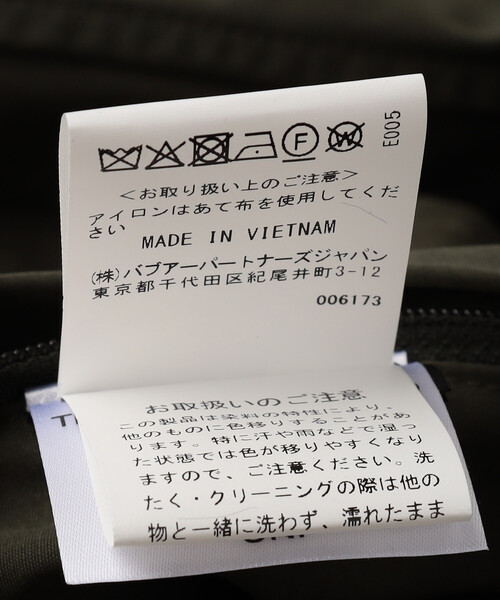 E005
F
W
<お取り扱い上のご注意>
アイロンはあて布を使用してくだ
さい
MADE IN VIETNAM
(株)バブアーパートナーズジャパン
東京都千代田区紀尾井町3-12
006173
お取扱いのご注意
この製品は染料の特性により、
他のものに色移りすることがあ
ります。特に汗や雨などで湿っ
た状態では色が移りやすくなり
ますので、ご注意ください。洗
たく・クリーニングの際は他の
物と一緒に洗わず、濡れたまま